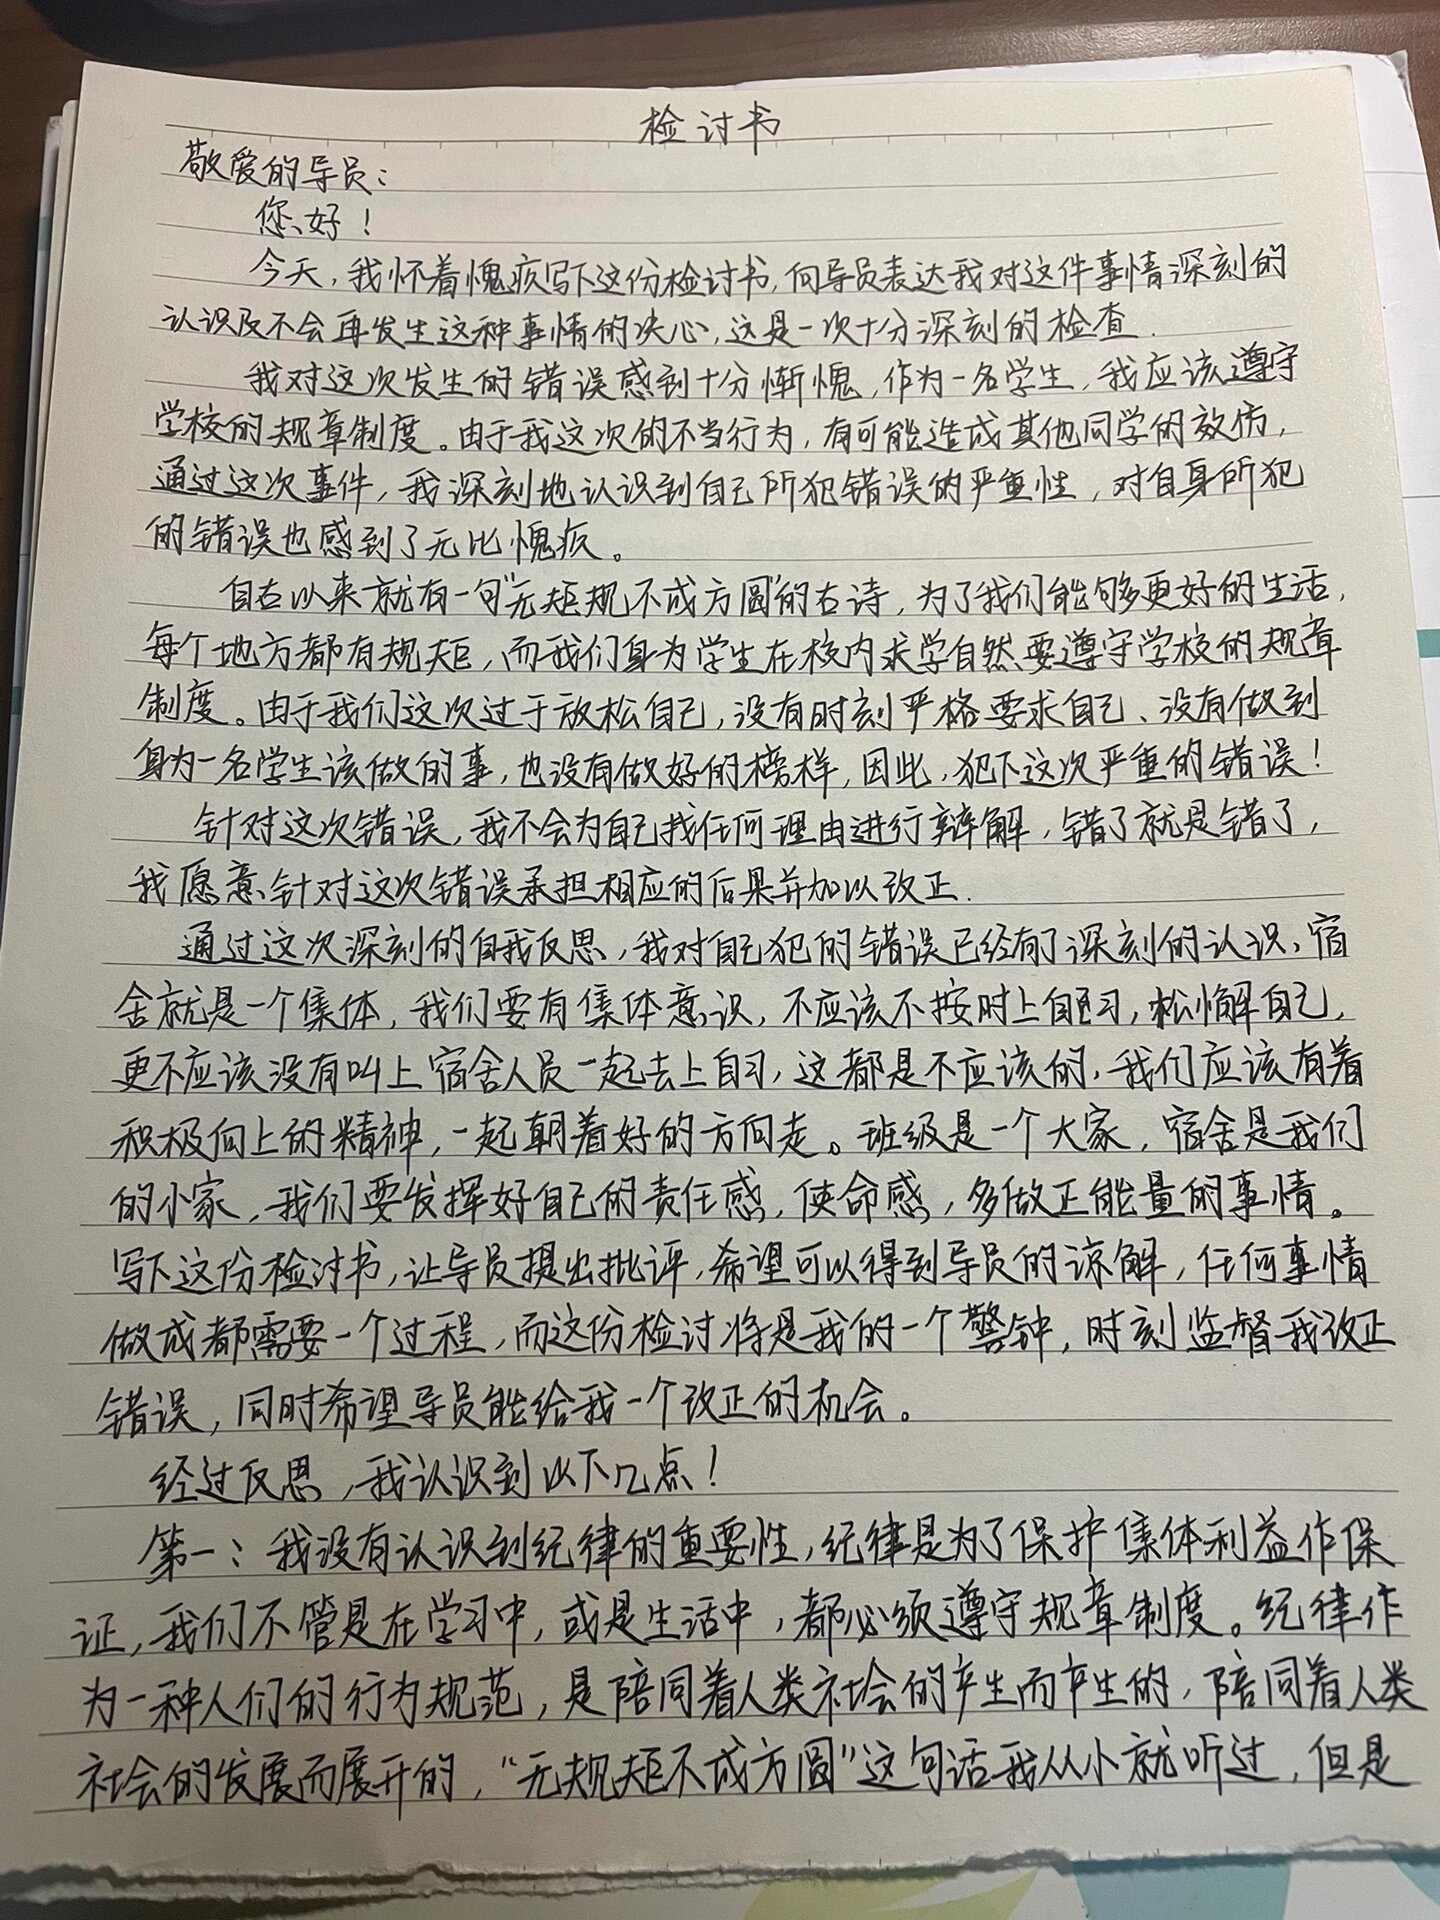 检讨书
敬爱的导员：
您好！
今天，我怀着愧疚写下这份检讨书，向导员表达我对这件事情深刻的
认识及不会再发生这种事情的决心，这是一次十分深刻的检查.
我对这次发生的错误感到十分惭愧，作为一名学生，我应该遵守
学校的规章制度。由于我这次的不当行为，有可能造成其他同学的效仿，
通过这次事件，我深刻地认识到自己所犯错误的严重性，对自身所犯
的错误也感到了无比愧疚。
自古以来就有一句“无矩规不成方圆”的古诗，为了我们能够更好的生活，
每个地方都有规矩，而我们身为学生在校内求学自然要遵守学校的规章
制度。由于我们这次过于放松自己，没有时刻严格要求自己、没有做到
身为一名学生该做的事，也没有做好的榜样，因此，犯下这次严重的错误！
针对这次错误，我不会为自己找任何理由进行辩解，错了就是错了，
我愿意针对这次错误承担相应的后果并加以改正.
通过这次深刻的自我反思，我对自己犯的错误已经有了深刻的认识，宿
舍就是一个集体，我们要有集体意识，不应该不按时上自习，松懈自己，
更不应该没有叫上宿舍人员一起去上自习，这都是不应该的，我们应该有着
积极向上的精神，一起朝着好的方向走。班级是一个大家，宿舍是我们
的小家，我们要发挥好自己的责任感，使命感，多做正能量的事情。
写下这份检讨书，让导员提出批评，希望可以得到导员的谅解，任何事情
做成都需要一个过程，而这份检讨将是我的一个警钟，时刻监督我改正
错误，同时希望导员能给我一个改正的机会。
经过反思，我认识到以下几点！
第一：我没有认识到纪律的重要性，纪律是为了保护集体利益作保
证，我们不管是在学习中，或是生活中，都必须遵守规章制度。纪律作
为一种人们的行为规范，是陪同着人类社会的产生而产生的，陪同着人类
社会的发展而展开的，“无规矩不成方圆”这句话我从小就听过，但是